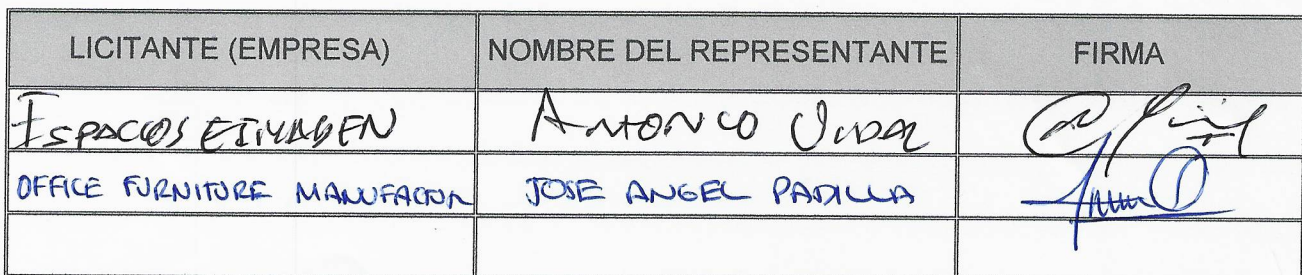 LICITANTE (EMPRESA) NOMBRE DEL REPRESENTANTE FIRMA
ESPACIOS E IMAGEN ANTONIO VIDAL
OFFICE FURNITURE MANUFACTUR JOSE ANGEL PADILLA